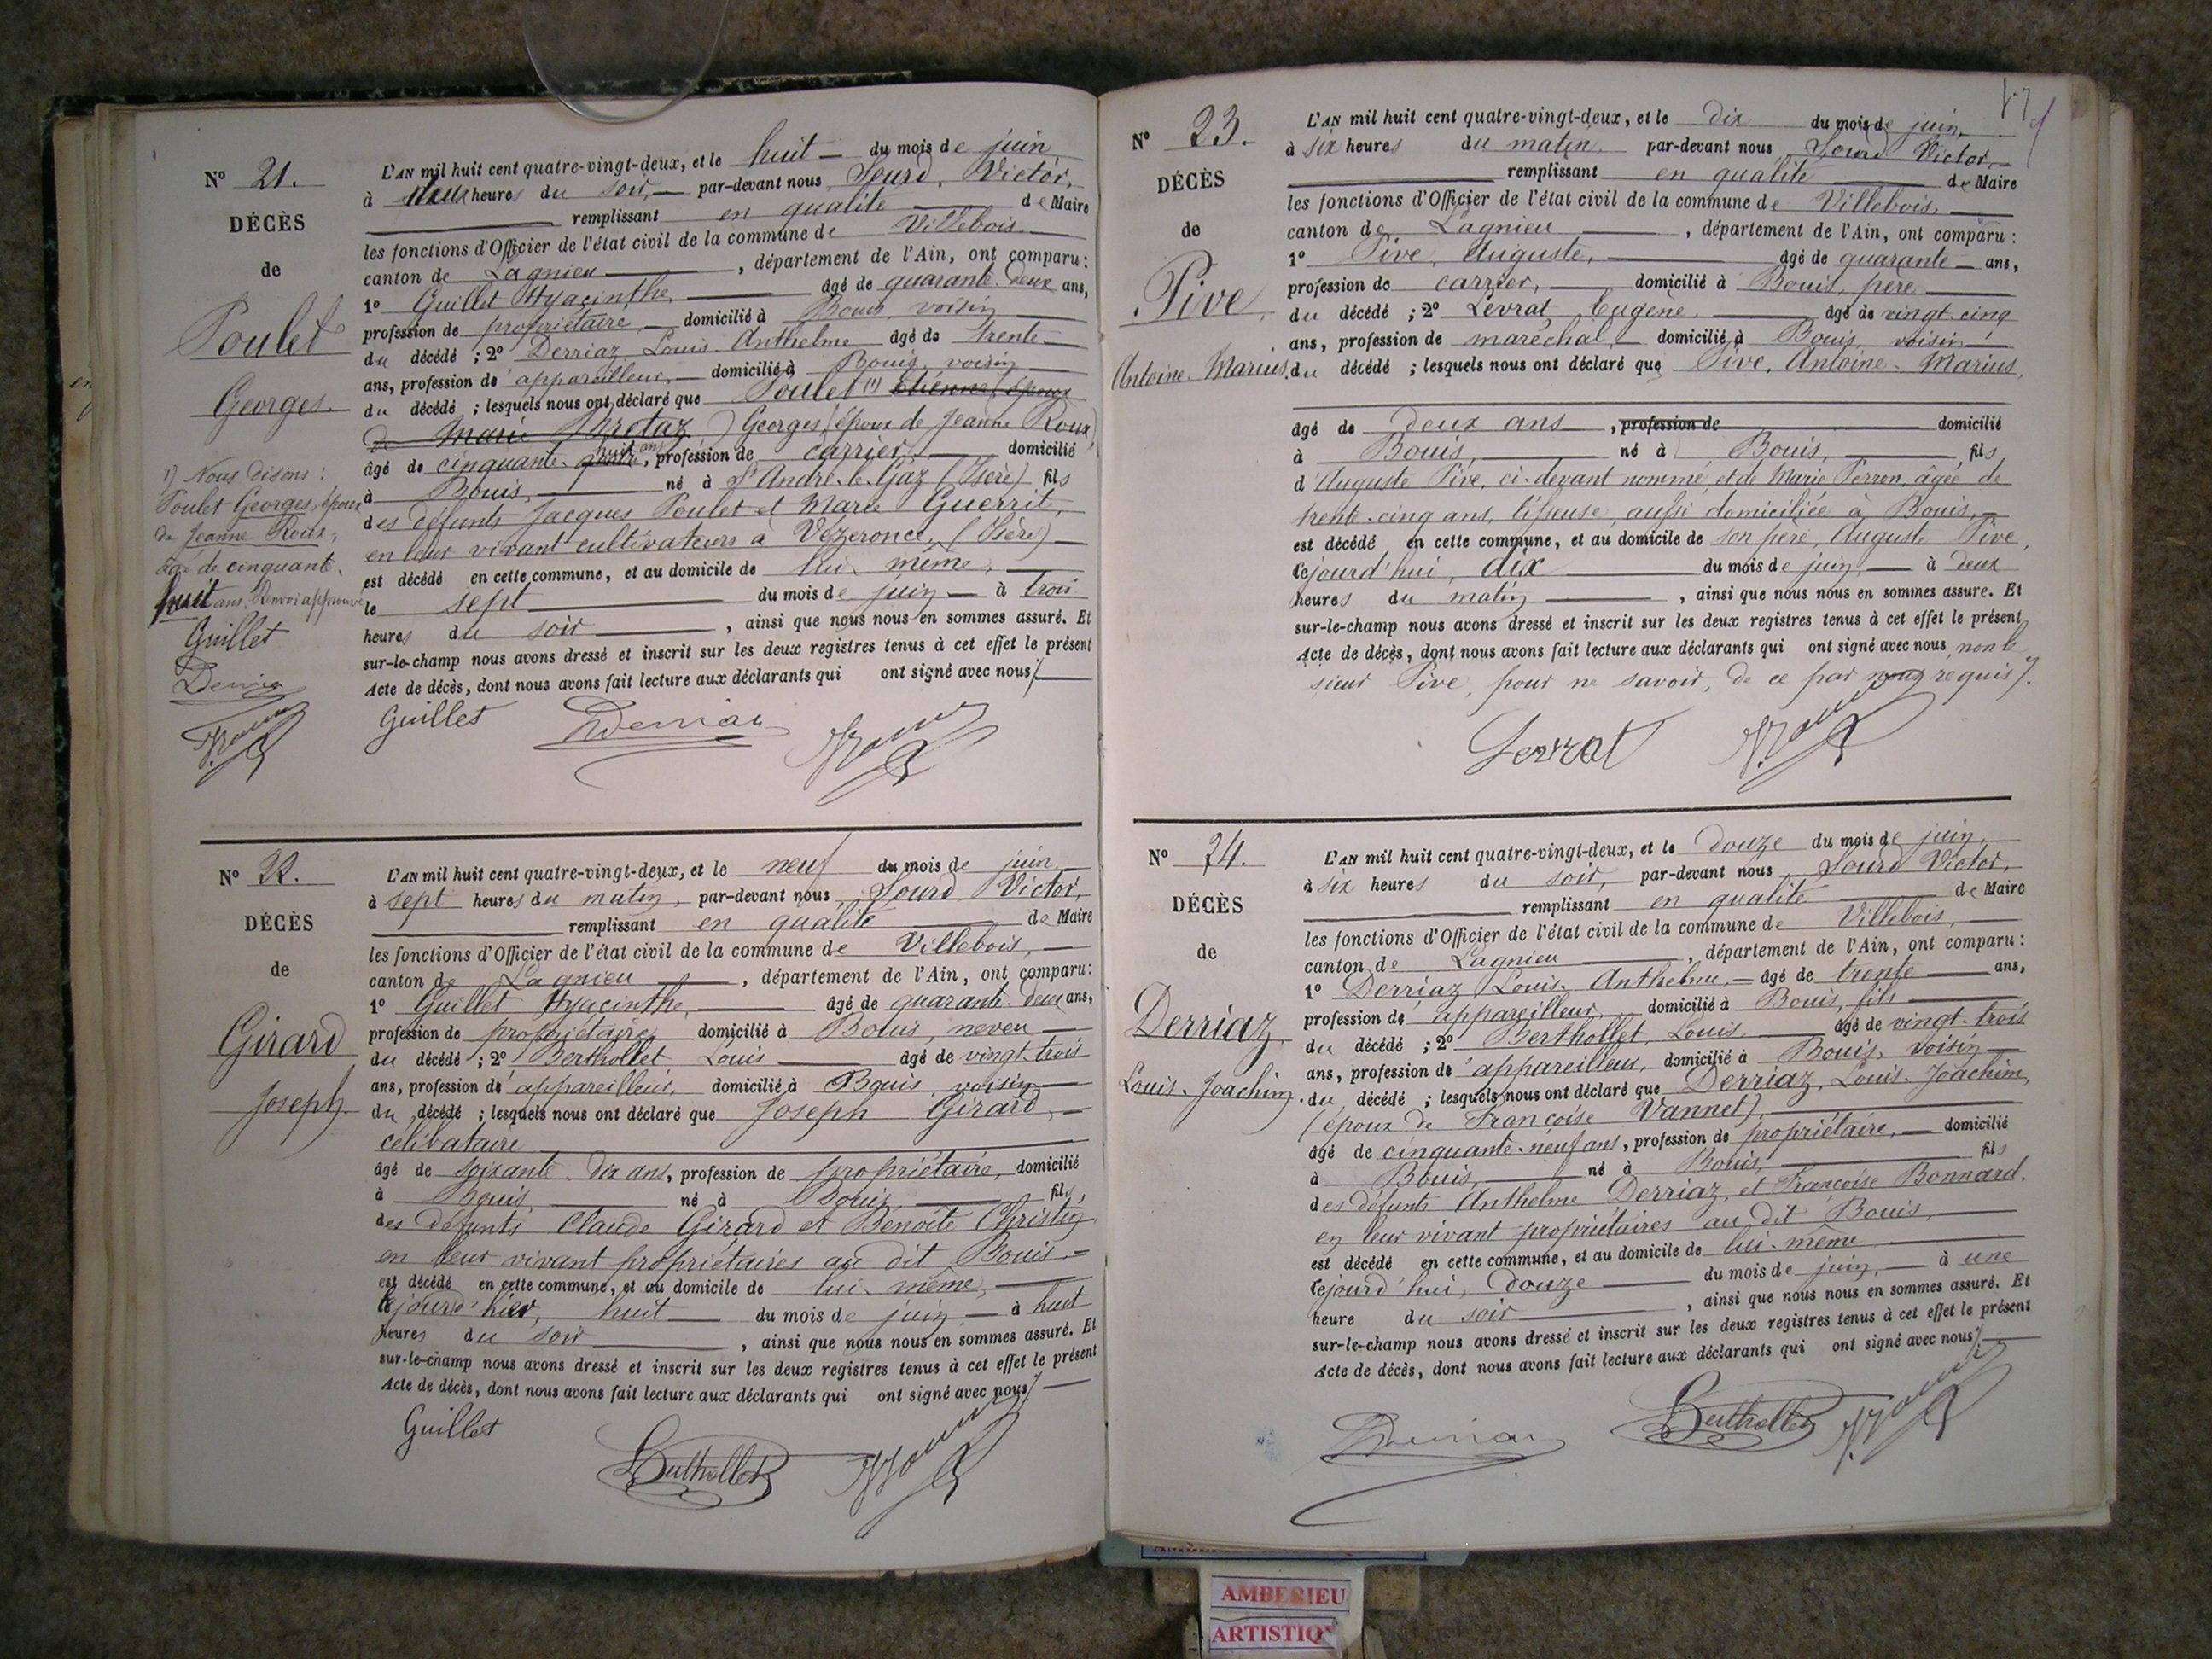 N° 21.
DÉCÈS
de
Poulet
Georges.
1) Nous disons :
Poulet Georges, époux
de Jeanne Roux,
âgé de cinquante-
huit ans. Renvoi approuvé
Guillet
Derriaz
L'AN mil huit cent quatre-vingt-deux, et le huit du mois de juin
à deux heures du soir, par-devant nous Sourd, Victor,
remplissant en qualité de Maire
les fonctions d'Officier de l'état civil de la commune de Villebois
canton de Lagnieu, département de l'Ain, ont comparu :
1° Guillet Hyacinthe, âgé de quarante-deux ans,
profession de propriétaire, domicilié à Bouis, voisin
du décédé ; 2° Derriaz Louis-Anthelme âgé de trente
ans, profession d'appareilleur, domicilié à Bouis, voisin
du décédé ; lesquels nous ont déclaré que Poulet (1) Etienne (époux
de Marie) Georges (époux de Jeanne Roux)
âgé de cinquante-huit ans, profession de carrier, domicilié
à Bouis, né à St André-le-Gaz (Isère) fils
des défunts Jacques Poulet et Marie Guerrit,
en leur vivant cultivateurs à Vézeronce, (Isère)
est décédé en cette commune, et au domicile de lui-même,
le sept du mois de juin à trois
heures du soir, ainsi que nous nous en sommes assuré. Et
sur-le-champ nous avons dressé et inscrit sur les deux registres tenus à cet effet le présent
Acte de décès, dont nous avons fait lecture aux déclarants qui ont signé avec nous
Guillet Derriaz
N° 22.
DÉCÈS
de
Girard
Joseph.
L'AN mil huit cent quatre-vingt-deux, et le neuf du mois de juin
à sept heures du matin, par-devant nous Sourd Victor,
remplissant en qualité de Maire
les fonctions d'Officier de l'état civil de la commune de Villebois,
canton de Lagnieu, département de l'Ain, ont comparu :
1° Guillet Hyacinthe, âgé de quarante-deux ans,
profession de propriétaire, domicilié à Bouis, neveu
du décédé ; 2° Berthollet Louis âgé de vingt-trois
ans, profession d'appareilleur, domicilié à Bouis, voisin
du décédé ; lesquels nous ont déclaré que Joseph Girard,
célibataire
âgé de soixante-dix ans, profession de propriétaire, domicilié
à Bouis, né à Bouis, fils
des défunts Claude Girard et Benoîte Christin
en leur vivant propriétaires au dit Bouis
est décédé en cette commune, et au domicile de lui-même,
le jourd'hier, huit du mois de juin à huit
heures du soir, ainsi que nous nous en sommes assuré. Et
sur-le-champ nous avons dressé et inscrit sur les deux registres tenus à cet effet le présent
Acte de décès, dont nous avons fait lecture aux déclarants qui ont signé avec nous
Guillet Berthollet
N° 23.
DÉCÈS
de
Pive,
Antoine-Marius.
L'AN mil huit cent quatre-vingt-deux, et le dix du mois de juin
à six heures du matin, par-devant nous Sourd Victor,
remplissant en qualité de Maire
les fonctions d'Officier de l'état civil de la commune de Villebois,
canton de Lagnieu, département de l'Ain, ont comparu :
1° Pive, Auguste, âgé de quarante ans,
profession de carrier, domicilié à Bouis, père
du décédé ; 2° Levrat Eugène âgé de vingt-cinq
ans, profession de maréchal domicilié à Bouis, voisin
du décédé ; lesquels nous ont déclaré que Pive, Antoine-Marius,
âgé de deux ans, profession de domicilié
à Bouis, né à Bouis, fils
d'Auguste Pive, ci-devant nommé et de Marie Perron, âgée de
trente-cinq ans, tisseuse, aussi domiciliée à Bouis,
est décédé en cette commune, et au domicile de son père, Auguste Pive,
lejourd'hui, dix du mois de juin, à deux
heures du matin, ainsi que nous nous en sommes assuré. Et
sur-le-champ nous avons dressé et inscrit sur les deux registres tenus à cet effet le présent
Acte de décès, dont nous avons fait lecture aux déclarants qui ont signé avec nous, non le
sieur Pive, pour ne savoir, de ce par nous requis.
Levrat
N° 24.
DÉCÈS
de
Derriaz,
Louis-Joachim.
L'AN mil huit cent quatre-vingt-deux, et le douze du mois de juin,
à six heures du soir, par-devant nous Sourd Victor,
remplissant en qualité de Maire
les fonctions d'Officier de l'état civil de la commune de Villebois,
canton de Lagnieu, département de l'Ain, ont comparu :
1° Derriaz Louis-Anthelme, âgé de trente ans,
profession d'appareilleur, domicilié à Bouis, fils
du décédé ; 2° Berthollet, Louis âgé de vingt-trois
ans, profession d'appareilleur, domicilié à Bouis, voisin
du décédé ; lesquels nous ont déclaré que Derriaz, Louis-Joachim,
(époux de Françoise Vannet),
âgé de cinquante-neuf ans, profession de propriétaire, domicilié
à Bouis, né à Bouis, fils
des défunts Anthelme Derriaz, et Françoise Bonnard,
en leur vivant propriétaires au dit Bouis,
est décédé en cette commune, et au domicile de lui-même
lejourd'hui, douze du mois de juin, à une
heure du soir, ainsi que nous nous en sommes assuré. Et
sur-le-champ nous avons dressé et inscrit sur les deux registres tenus à cet effet le présent
Acte de décès, dont nous avons fait lecture aux déclarants qui ont signé avec nous
Derriaz Berthollet
AMBERIEU
ARTISTIQ